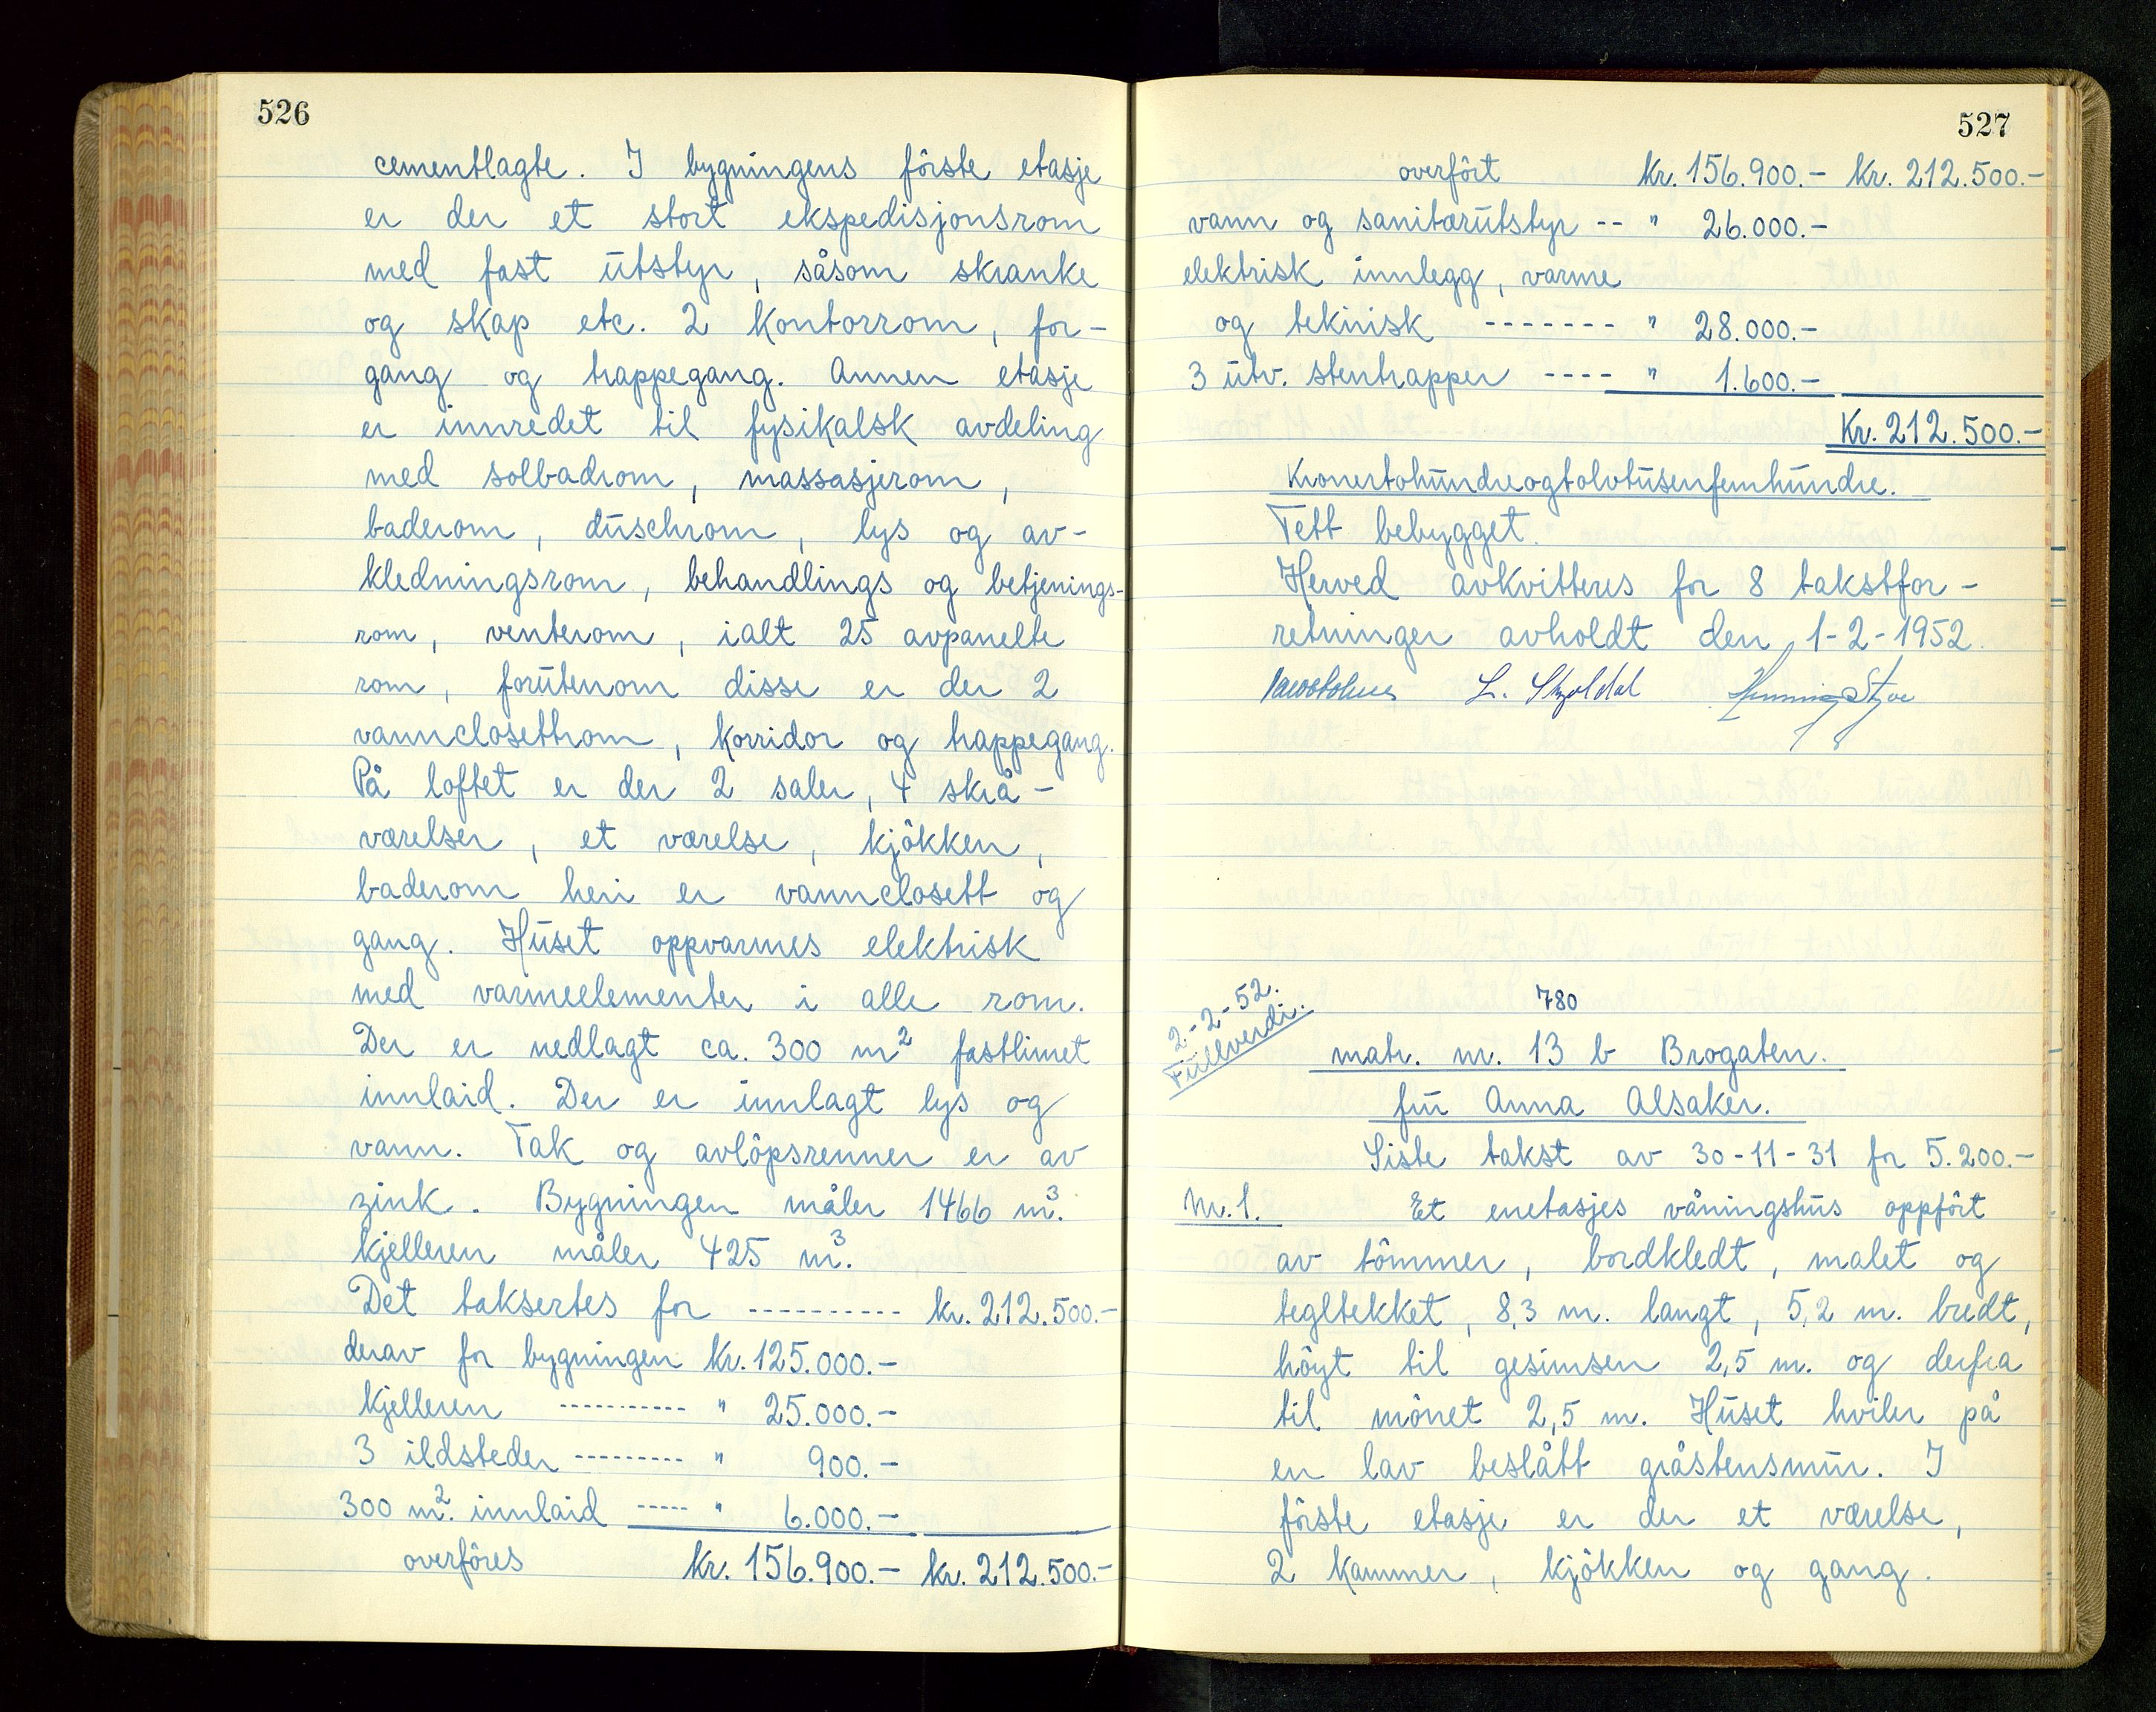 526
cementlagte. I bygningens förste etasje
er der et stort ekspedisjonsrom
med fast utstyr, såsom skranke
og skap etc. 2 kontorrom, for-
gang og trappegang. Annen etasje
er innredet til fysikalsk avdeling
med solbadrom, massasjerom,
baderom, duschrom, lys og av-
kledningsrom, behandlings og betjenings-
rom, venterom, ialt 25 avpanelte
rom, forutenom disse er der 2
vannclosettrom, korridor og trappegang.
På loftet er der 2 saler, 4 skrå-
værelser, et værelse, kjökken,
baderom heri er vannclosett og
gang. Huset oppvarmes elektrisk
med varmeelementer i alle rom.
Der er nedlagt ca. 300 m² fastlimet
innlaid. Der er innlagt lys og
vann. Tak og avlöpsrenner er av
zink. Bygningen måler 1466 m³.
Kjelleren måler 425 m³.
Det taksertes for ---------- kr. 212.500.-
derav for bygningen kr. 125.000.-
Kjelleren ----------- " 25.000.-
3 ildsteder --------- " 900.-
300 m². innlaid ----- " 6.000.-
overföres kr. 156.900.- kr. 212.500.-
527
overfört kr. 156.900.- kr. 212.500.-
vann og sanitærutstyr -- " 26.000.-
elektrisk innlegg, varme
og teknisk ------- " 28.000.-
3 utv. stentrapper ---- " 1.600.-
Kr. 212.500.-
Kronertohundreogtolvtusenfemhundre.
Tett bebygget.
Herved avkvitteres for 8 takstfor-
retninger avholdt den 1-2-1952.
Henning Styve
2-2-52.
Fullverdi.
780
matr. nr. 13 b Brogaten.
fru Anna Alsaker.
Siste takst av 30-11-31 for 5.200.-
Nr. 1. Et enetasjes våningshus oppfört
av tömmer, bordkledt, malet og
tegltekket, 8,3 m. langt, 5,2 m. bredt,
höyt til gesimsen 2,5 m. og derfra
til mönet 2,5 m. Huset hviler på
en lav beslått gråstensmur. I
förste etasje er der et værelse,
2 kammer, kjökken og gang.